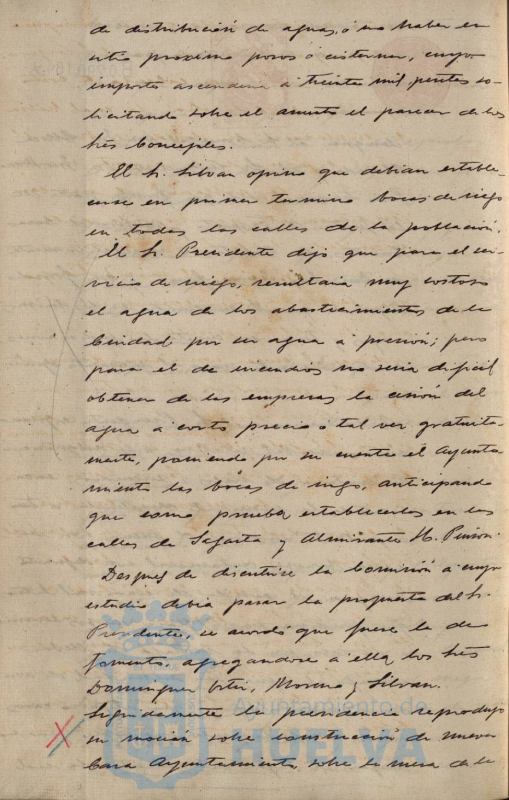 de distribución de aguas, ó no haber en
sitio proximo pozos ó cisternas, cuyo
importe ascenderia á treinta mil pesetas so-
licitando sobre el asunto el parecer de los
Srs Concejales.
El Sr. Silvan opina que debian estable-
cerse en primer termino bocas de riego
en todas las calles de la población.
El Sr. Presidente dijo que para el ser-
vicio de riego, resultaria muy costoso
el agua de los abastecimientos de la
Ciudad por ser agua á presión; pero
para el de incendios no seria dificil
obtener de las empresas la cesión del
agua á corto precio ó tal vez gratuita-
mente, poniendo por su cuenta el Ayunta-
miento las bocas de riego, anticipando
que como prueba establecerlas en las
calles de Sagasta y Almirante H. Pinzon.
Despues de discutirse la Comisión á cuyo
estudio debia pasar la propuesta del Sr.
Presidente, se acordó que fuese la de
fomento, agregandose á ella, los Srs
Dominguez, Moreno y Silvan.
Seguidamente la presidencia reprodujo
su moción sobre construcción de nueva
Casa Ayuntamiento, sobre la mesa de la
Ayuntamiento de
HUELVA